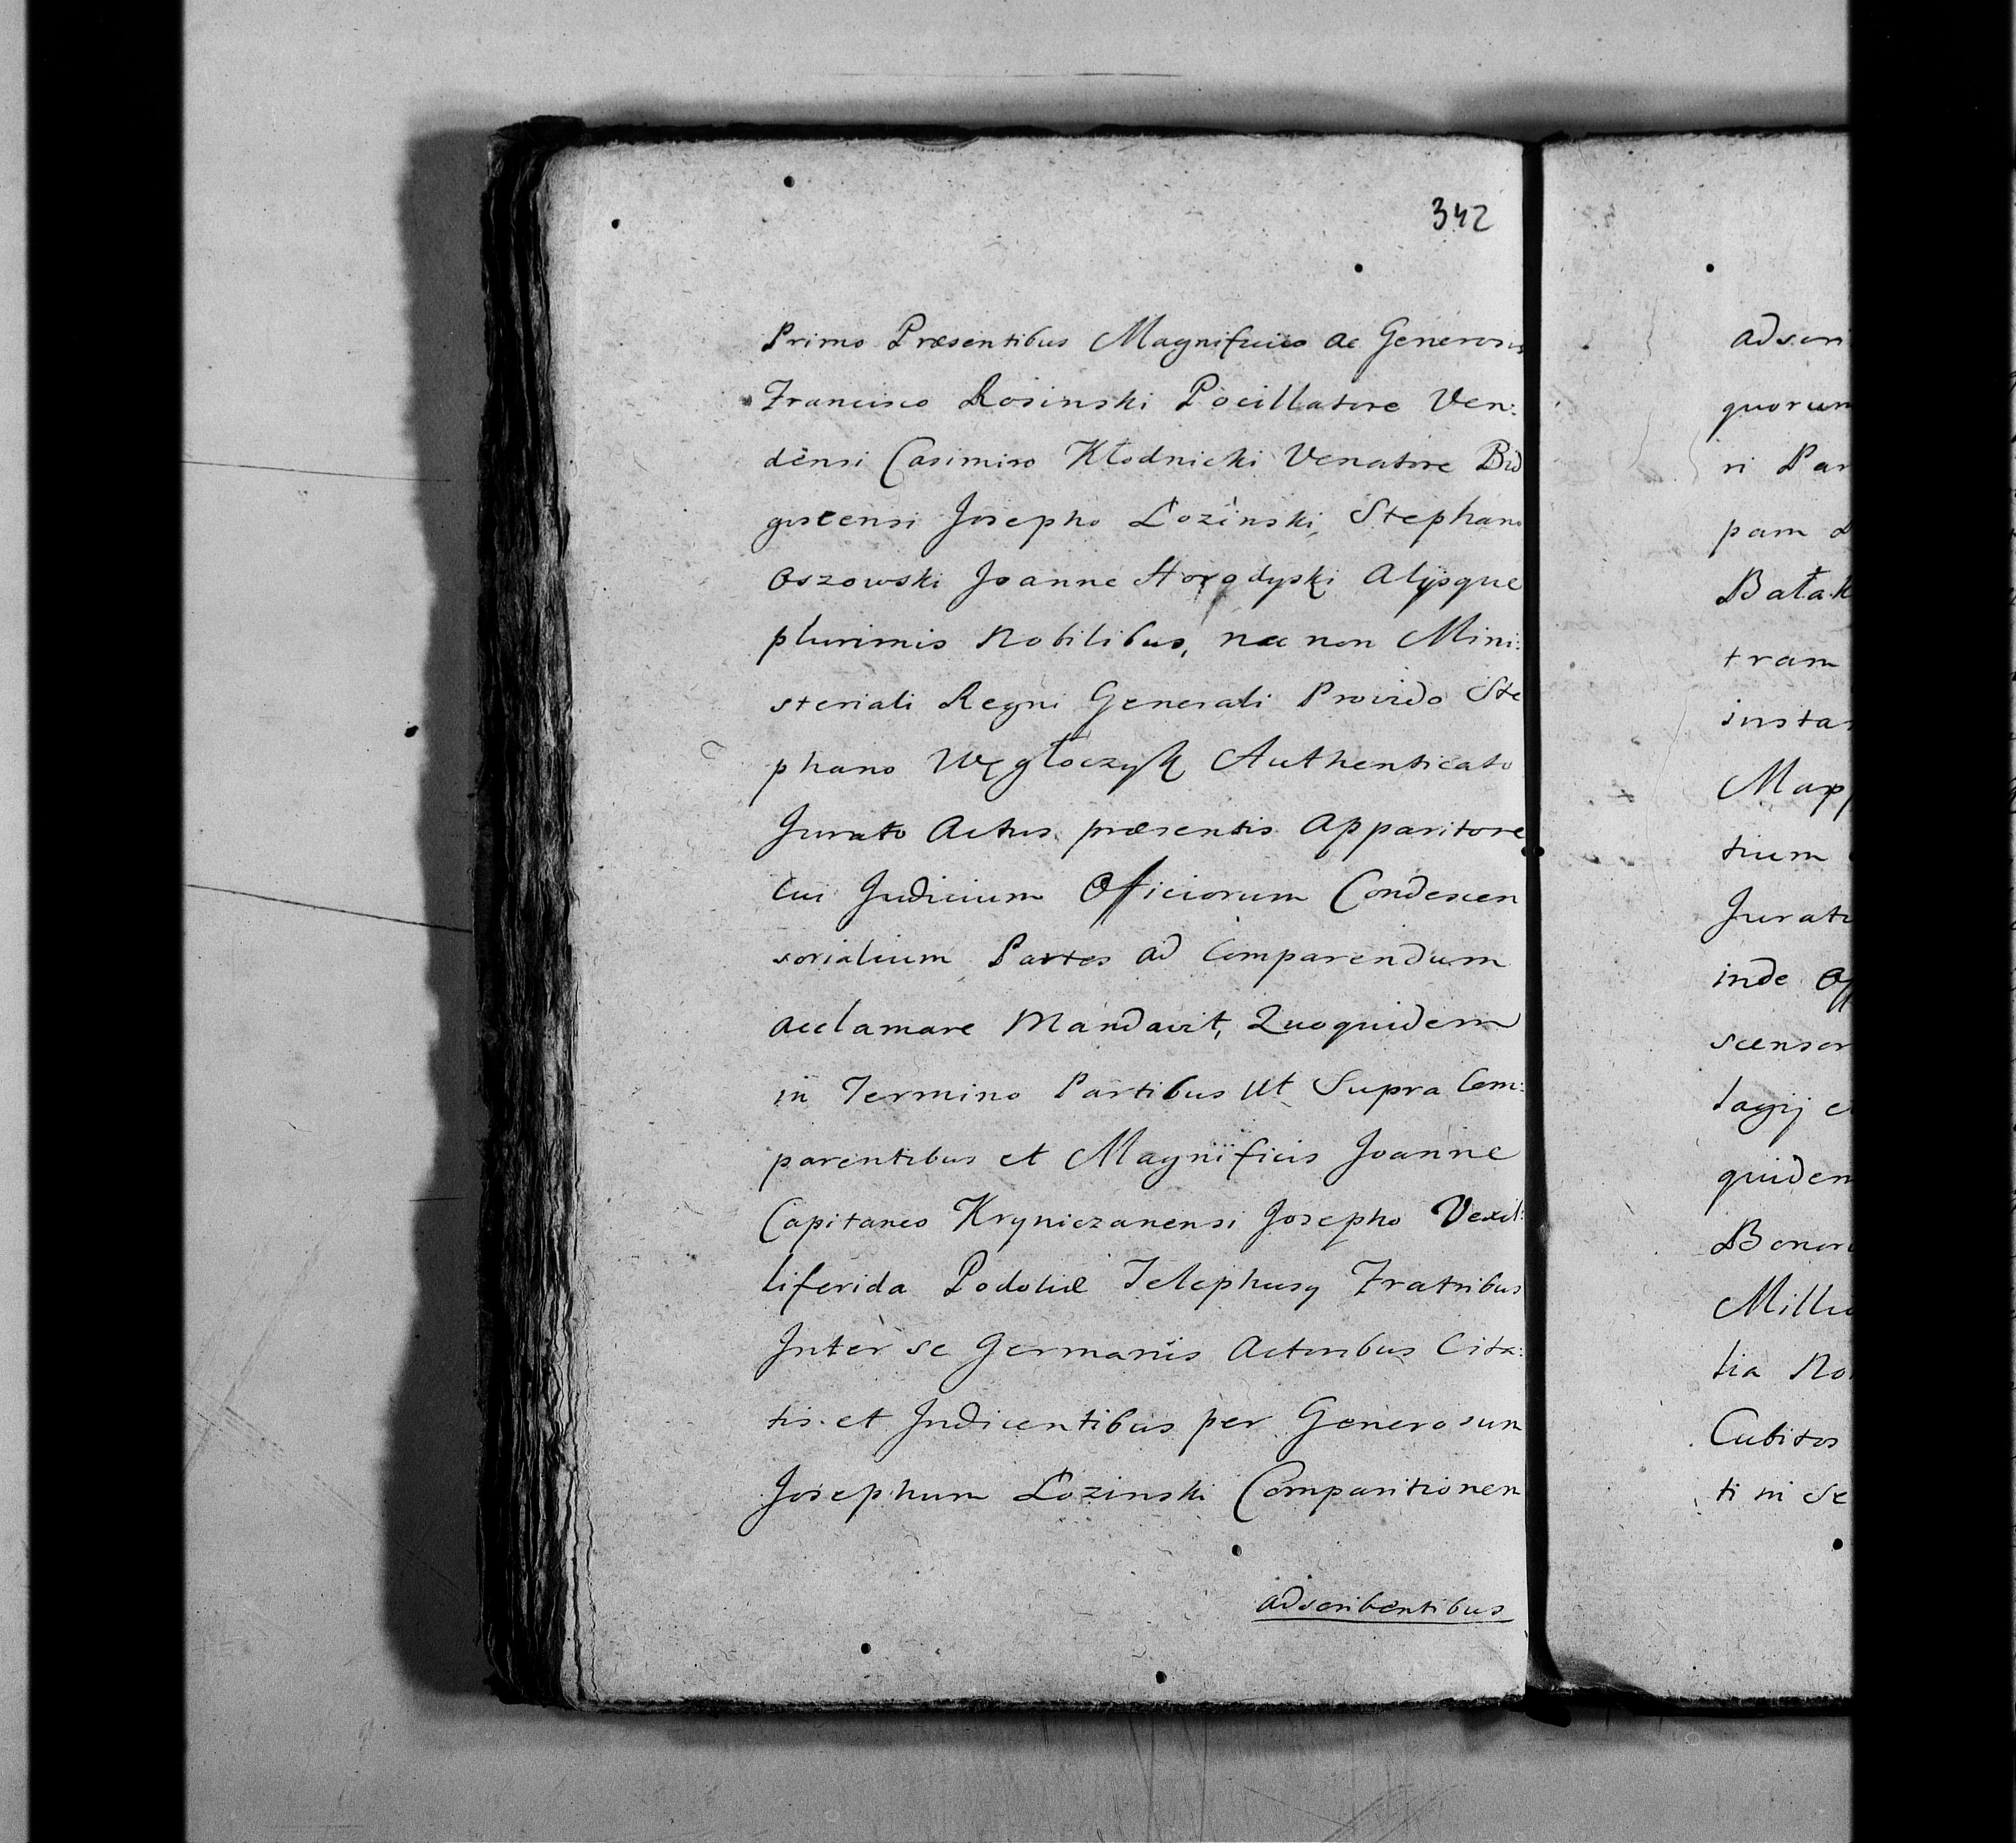 342
Primo Præsentibus Magnificis ac Generosis
Francisco Rosinski Pocillatore Ven:
densi Casimiro Kłodnicki Venatore Bid
gostensi Josepho Łozinski, Stephano
Oszowski Joanne Horodyski Alijsque
plurimis Nobilibus, nec non Mini:
steriali Regni Generali Provido Ste
phano Węgłoczyk Authenticato
Jurato Actus præsentis Apparitore
Cui Judicium Officiorum Condescen
sorialium Partes ad Comparendum
acclamare Mandavit, Quoquidem
in Termino Partibus Ut Supra Com:
parentibus et Magnificis Joanne
Capitaneo Kryniczanensi Josepho Vexil:
liferida Podoliæ Telephusy Fratribus
Inter se Germanis Actoribus Cita:
tis et Indicentibus per Generosum
Josephum Łozinski Comparitionem
adscribentibus
adscri
quorum
ri Par
pam
Batak
tram
instan
Mapp
tium
Jurat
inde Off
scensor
lagij
quidem
Bonor
Milli
lia No
Cubitos
ti in Se